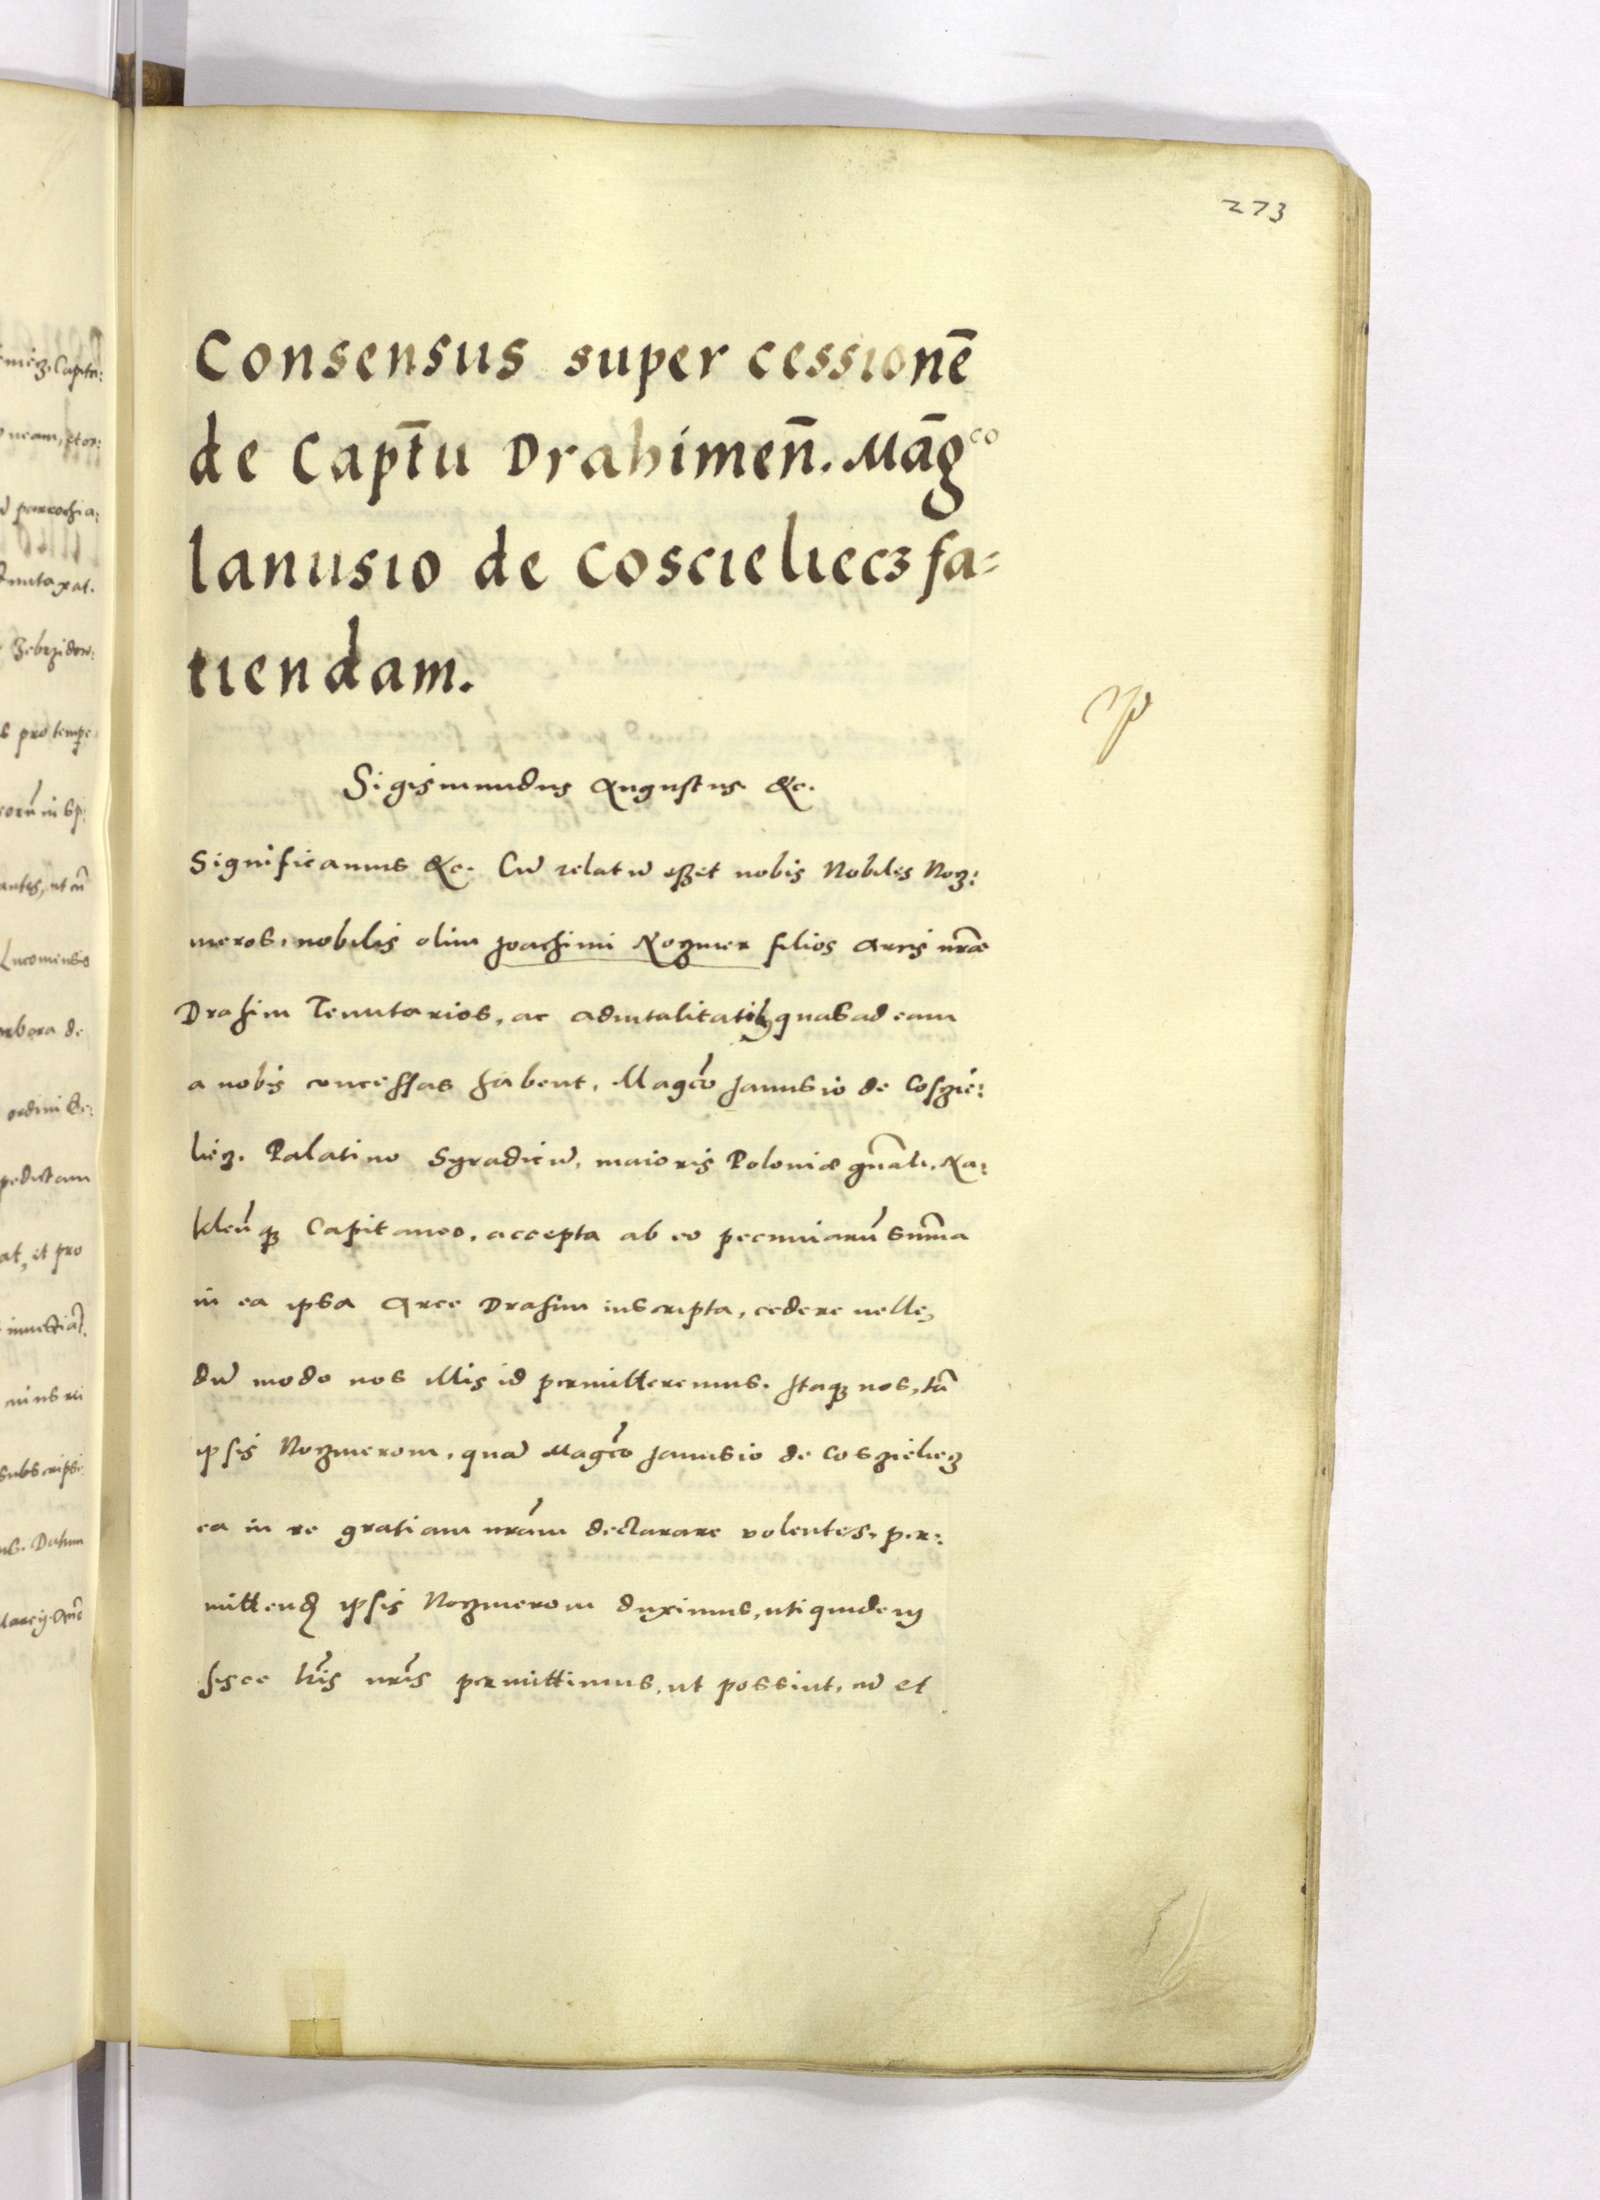 273
Consensus super cessionē
de Capt̄u Drahimen̄. Māg^co
Ianusio de Coscieliecz fa=
tiendam.
Sigismundus Augustus &c.
Significamus &c. Cū relatū esset nobis Nobiles Noz:
meros, nobilis olim Joachimi Nozmer filios Arcis nr̄ae
Drahim Tenutarios, ac aduitalitatibq quas ad eam
a nobis concessas habent, Magco̅ Janusio de Coszie:
liez. Palatino Syradien̄, maioris Poloniae gn̄ali, Na:
klen̄q; Capitaneo, accepta ab eo pecuniarū sum̄a
in ea ipsa Arce Drahim inscripta, cedere uelle,
dū modo nos illis id permitteremus. Itaq; nos, tā
ipsis Nozmerom, quā Magco̅ Janusio de Coszieliez
ea in re gratiam nrām declarare volentes, per:
mittend ipsis Nozmerom duximus, uti quidem
hisce lrīs nrīs permittimus, ut possint, cū et